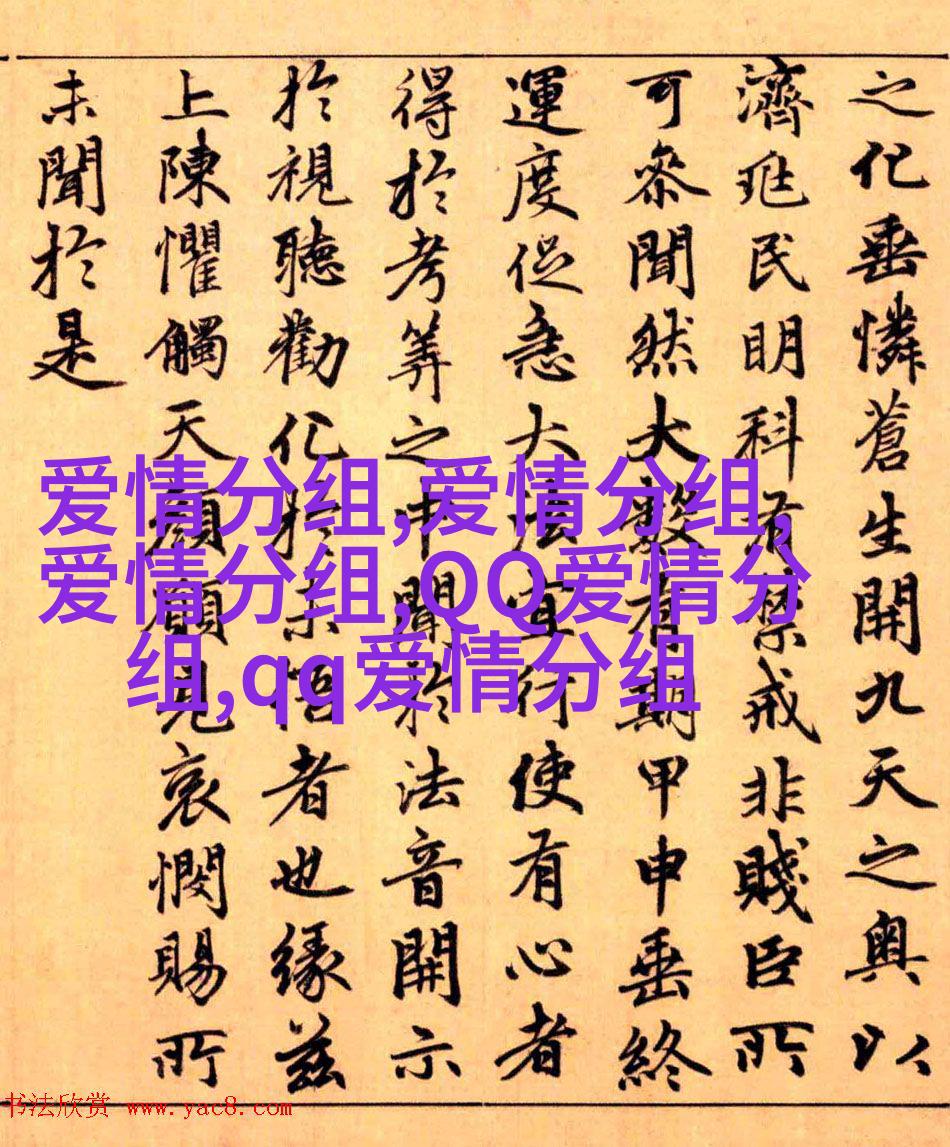 之化垂憐蒼生開九天之奧以
濟兆民明科有禁戒非賤臣所
可叅聞然大數有期甲申垂終
運度促急大法宜行使有心者
得於考筭之中聞於法音開示
於視聽勸化於未悟者也緣茲
上陳懼觸天顏願見哀憫賜所
未聞於是
爱情分组,爱情分组,
爱情分组,QQ爱情分
组,qq爱情分组
书法欣赏 www.yac8.com